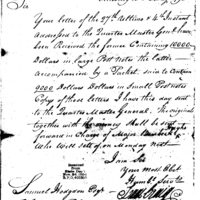 Sir
Your letter of the 27th Ultimo & 4th Instant
addressed to the Quarter Master Genl have
been Received the former Containing 10000
Dollars in Large Post Notes the latter
accompanied by a Packet said to contain
9000 Dollars in Small Post notes
Copy of those Letters I have this day sent
to the Quarter Master General. The original
together with the money shall be sent
forward in Charge of Major
Who Will set of on Monday next
I am Sir
Your most Obt
Samuel Hodgdon Esqr